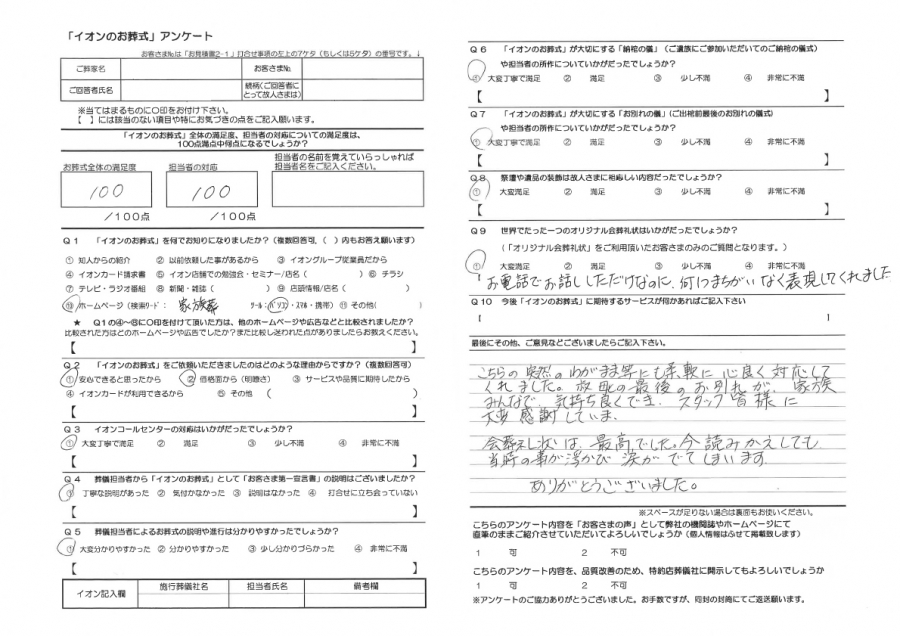 「イオンのお葬式」アンケート
お客さま№は「お見積書2-1」打合せ事項の左上の7ケタ(もしくは5ケタ)の番号です。↓
ご葬家名 お客さま№
ご回答者氏名 続柄(ご回答者に
とって故人さまは)
※当てはまるものに○印をお付け下さい。
【 】には該当のない項目や特にお気づきの点をご記入願います。
「イオンのお葬式」全体の満足度、担当者の対応についての満足度は、
100点満点中何点になるでしょうか?
お葬式全体の満足度 担当者の対応 担当者の名前を覚えていらっしゃれば
担当者名をご記入ください。
100 100
/100点 /100点
Q1 「イオンのお葬式」を何でお知りになりましたか?(複数回答可、( )内もお答え願います)
① 知人からの紹介 ② 以前依頼した事があるから ③ イオングループ従業員だから
④ イオンカード請求書 ⑤ イオン店舗での勉強会・セミナー/店名( ) ⑥ チラシ
⑦ テレビ・ラジオ番組 ⑧ 新聞・雑誌( ) ⑨ 店頭情報/店名( )
⑩ ホームページ(検索ワード: 家族葬 ツール:パソコン・スマホ・携帯) ⑪ その他( )
★ Q1の④~⑧に○印を付けて頂いた方は、他のホームページや広告などと比較されましたか?
比較された方はどのホームページや広告でしたか?また比較し迷われた点がありましたらお教えください。
【 】
Q2 「イオンのお葬式」をご依頼いただきましたのはどのような理由からですか?(複数回答可)
① 安心できると思ったから ② 価格面から(明瞭さ) ③ サービスや品質に期待したから
④ イオンカードが利用できるから ⑤ その他 ( )
【 】
Q3 イオンコールセンターの対応はいかがだったでしょうか?
① 大変丁寧で満足 ② 満足 ③ 少し不満 ④ 非常に不満
【 】
Q4 葬儀担当者から「イオンのお葬式」として「お客さま第一宣言書」の説明はございましたか?
① 丁寧な説明があった ② 気付かなかった ③ 説明はなかった ④ 打合せに立ち会っていない
【 】
Q5 葬儀担当者によるお葬式の説明や進行は分かりやすかったでしょうか?
① 大変分かりやすかった ② 分かりやすかった ③ 少し分かりづらかった ④ 非常に不満
【 】
イオン記入欄 施行葬儀社名 担当者氏名 備考欄
Q6 「イオンのお葬式」が大切にする「納棺の儀」(ご遺族にご参加いただいてのご納棺の儀式)
や担当者の所作についていかがだったでしょうか?
① 大変丁寧で満足 ② 満足 ③ 少し不満 ④ 非常に不満
【 】
Q7 「イオンのお葬式」が大切にする「お別れの儀」(ご出棺前最後のお別れの儀式)
や担当者の所作についていかがだったでしょうか?
① 大変丁寧で満足 ② 満足 ③ 少し不満 ④ 非常に不満
【 】
Q8 祭壇や遺品の装飾は故人さまに相応しい内容だったでしょうか?
① 大変満足 ② 満足 ③ 少し不満 ④ 非常に不満
【 】
Q9 世界でたった一つのオリジナル会葬礼状はいかがだったでしょうか?
(「オリジナル会葬礼状」をご利用頂いたお客さまのみのご質問となります。)
① 大変満足 ② 満足 ③ 少し不満 ④ 非常に不満
お電話でお話ししただけなのに、何1つまちがいなく表現してくれました
Q10 今後「イオンのお葬式」に期待するサービスが何かあればご記入下さい
【 】
最後にその他、ご意見などございましたらご記入下さい。
こちらの突然のわがまま等にも柔軟に心良く対応して
くれました。故 の最後のお別れが、家族
みんなで、気持ち良くでき、スタッフ皆様に
大変感謝していま、
会葬礼状は、最高でした。今読みかえしても
当時の事が浮かび涙がでてしまいます
ありがとうございました。
※スペースが足りない場合は裏面もお使いください。
こちらのアンケート内容を「お客さまの声」として弊社の機関誌やホームページにて
直筆のままご紹介させていただいてよろしいでしょうか(個人情報はふせて掲載致します)
1 可 2 不可
こちらのアンケート内容を、品質改善のため、特約店葬儀社に開示してもよろしいでしょうか
1 可 2 不可
※アンケートのご協力ありがとうございました。お手数ですが、同封の封筒にてご返送願います。